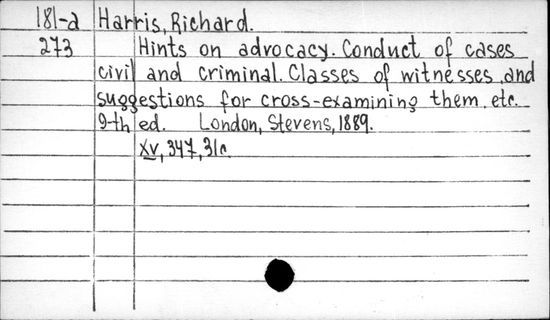 181-a Harris, Richard.
273 Hints on advocacy. Conduct of cases
civil and criminal. Classes of witnesses and
suggestions for cross-examining them, etc.
9-th ed. London, Stevens, 1889.
XV, 347, 31c.